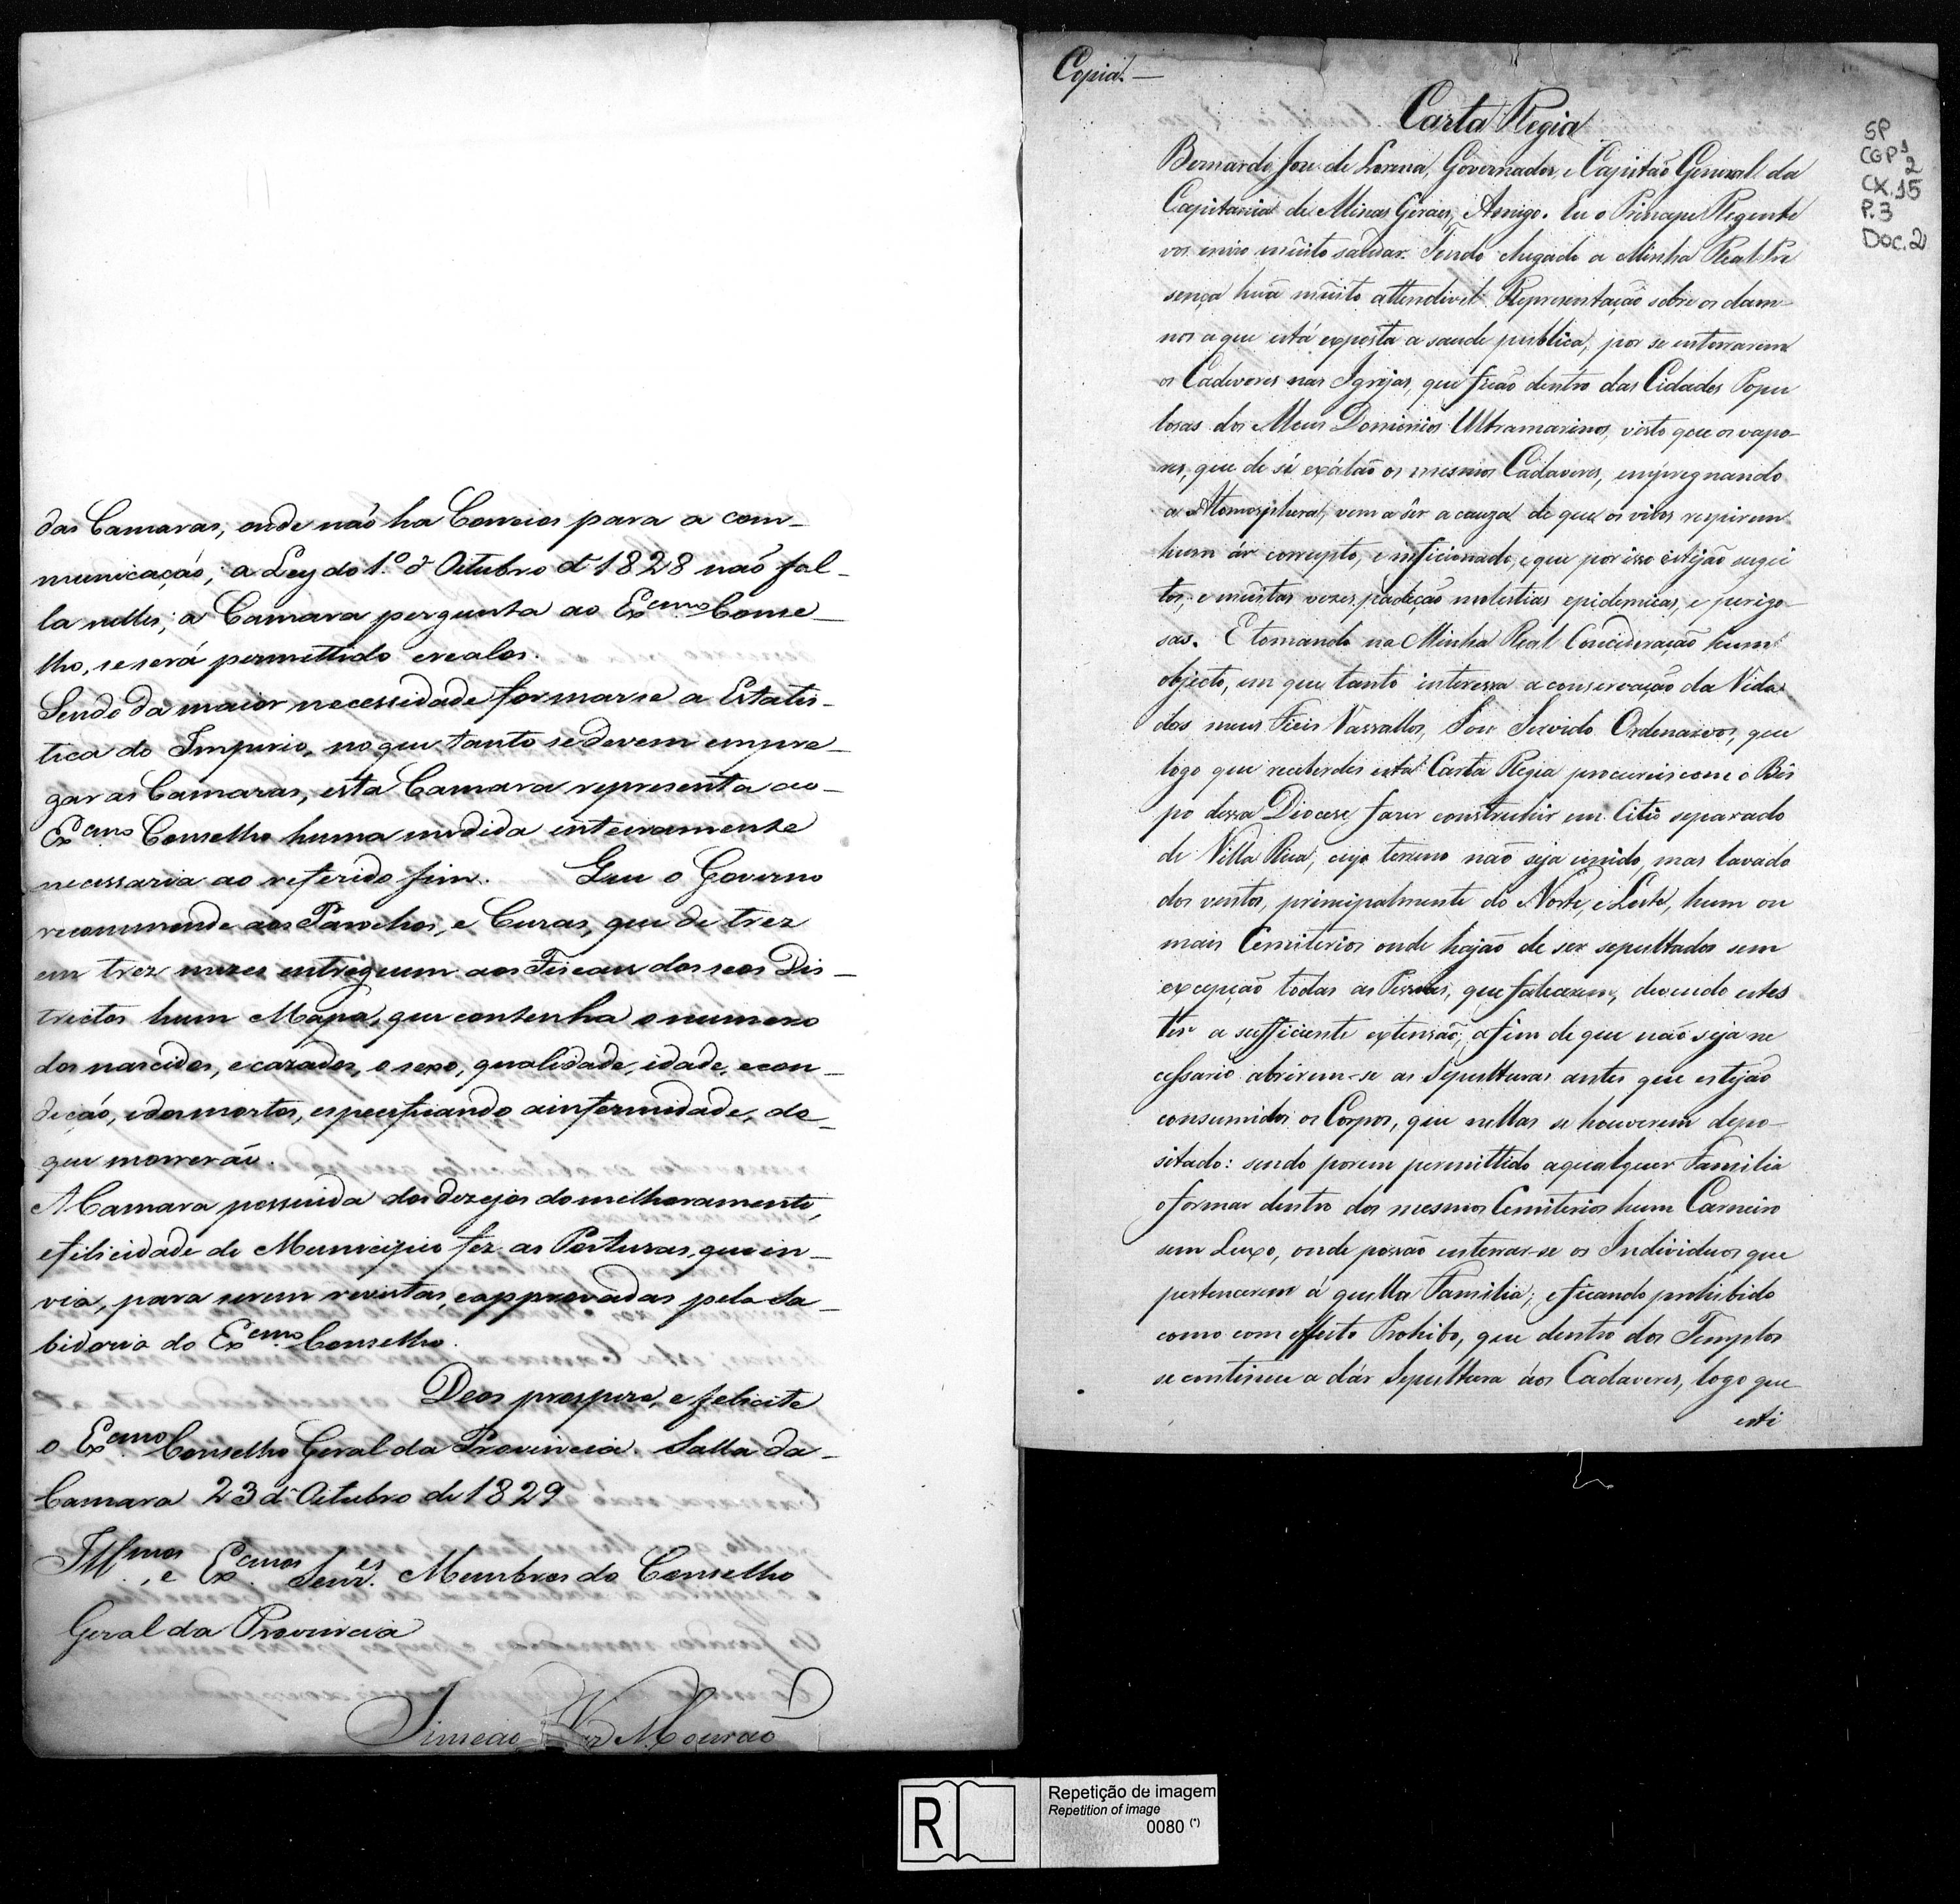 das Camaras, onde não ha Correios para a com-
municação, a Ley do 1.º d'Oitubro d'1828 não fal-
la nelles; a Camara pergunta ao Ex.cmo Conse-
lho, se será permettido crealos.
Sendo da maior necessidade formarse a Estatis-
tica do Imperio, no que tanto se devem empre-
gar as Camaras, esta Camara representa ao
Ex.cmo Conselho huma medida inteiramente
necessaria ao referido fim. Que o Governo
recommende aos Parochos, e Curas, que de trez
em trez mezes entreguem aos Fiscaes dos seos Dis-
trictos hum Mapa, que contenha o numero
dos nascidos, e cazados, o sexo, qualidade, idade, e con-
dição, e dos mortos, especificando a infermidade, de
que morrerão.
A Camara possuida dos dezejos do melhoramento,
e filicidade do Municipio fez as Posturas, que in-
via, para serem revistas, e approvadas pela Sa-
bidoria do Ex.cmo Conselho.
Deos prospere, e felicite
o Ex.cmo Conselho Geral da Provincia. Salla da
Camara 23 d'Oitubro de 1829
Ill.mos, e Ex.cmos Senr.es Membros do Conselho
Geral da Provincia
Simeão Mourão
Copia. —
Carta Regia
Bernardo Jose de Lorena, Governador, e Capitão General da
Capitania de Minas Geraes, Amigo. Eu o Principe Regente
vos envio muito saudar. Sendo chegado a Minha Real Pre
sença huã muito attendivel Representação sobre os dam-
nos a que está exposta a saude publica, por se enterrarem
os Cadeveres nas Igrejas, que ficão dentro das Cidades Popu
losas dos Meus Dominios Ultramarinos, visto que os vapo-
res, que de si exálão os mesmos Cadaveres, empregnando
a Atomosphera, vem a ser a cauza de que os vivos respirem
hum ár corrupto, e inficionado, e que por isso estejão sugei
tos, e muitas vezes padeção molestias epidemicas, e perigo-
sas. E tomando na Minha Real Concideração hum
objecto, em que tanto interessa a conservação da Vida
dos meus Fieis Vassallos, Sou Servido Ordenarvos, que
logo que receberdes esta Carta Regia procureis com o Bis
po dessa Diocese fazer construhir em Citio separado
de Villa Rica, cujo terreno não seja umido, mas lavado
dos ventos, principalmente do Norte, e Leste, hum ou
mais Cemiterios onde hajão de ser sepultados sem
excepção todas as Pessoas, que falecerem, devendo estes
ter a sufficiente extensão, afim de que não seja ne
cessario abrirem-se as Sepulturas antes que estejão
consumidos os Corpos, que nellas se houverem depo-
sitado: sendo porem permittido a qualquer Familia
o formar dentro dos mesmos Cemiterios hum Carneiro
sem Luxo, onde possão enterrar-se os Individuos que
pertencerem á quella Familia; e ficando prohibido
como com effeito Prohibo, que dentro dos Templos
se continue a dár Sepultura áos Cadaveres, logo que
esti
SP
CGP1
2
CX.15
P.3
Doc.2
R
Repetição de imagem
Repetition of image
0080 (*)